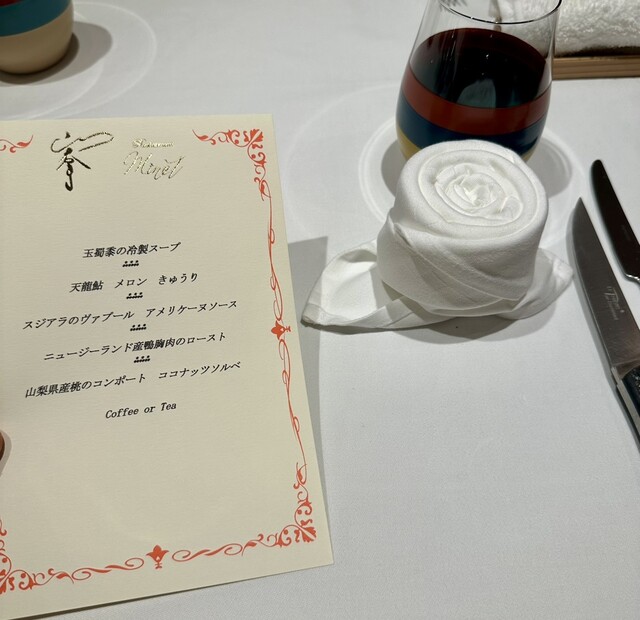 Minet
玉蜀黍の冷製スープ
天龍鮎 メロン きゅうり
スジアラのヴァプール アメリケーヌソース
ニュージーランド産鴨胸肉のロースト
山梨県産桃のコンポート ココナッツソルベ
Coffee or Tea